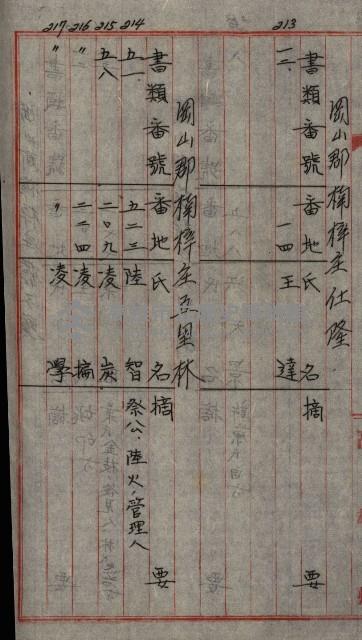 岡山郡楠梓庄仕隆
書類番號 番地 氏名 摘要
213 一三、 一四 王達
岡山郡楠梓庄五里林
書類番號 番地 氏名 摘要
214 五一、 五二三 陸智 祭公、陸火、管理人
215 五八 二〇九 凌炭
216 〃 二二四 凌
217 〃 〃 凌學